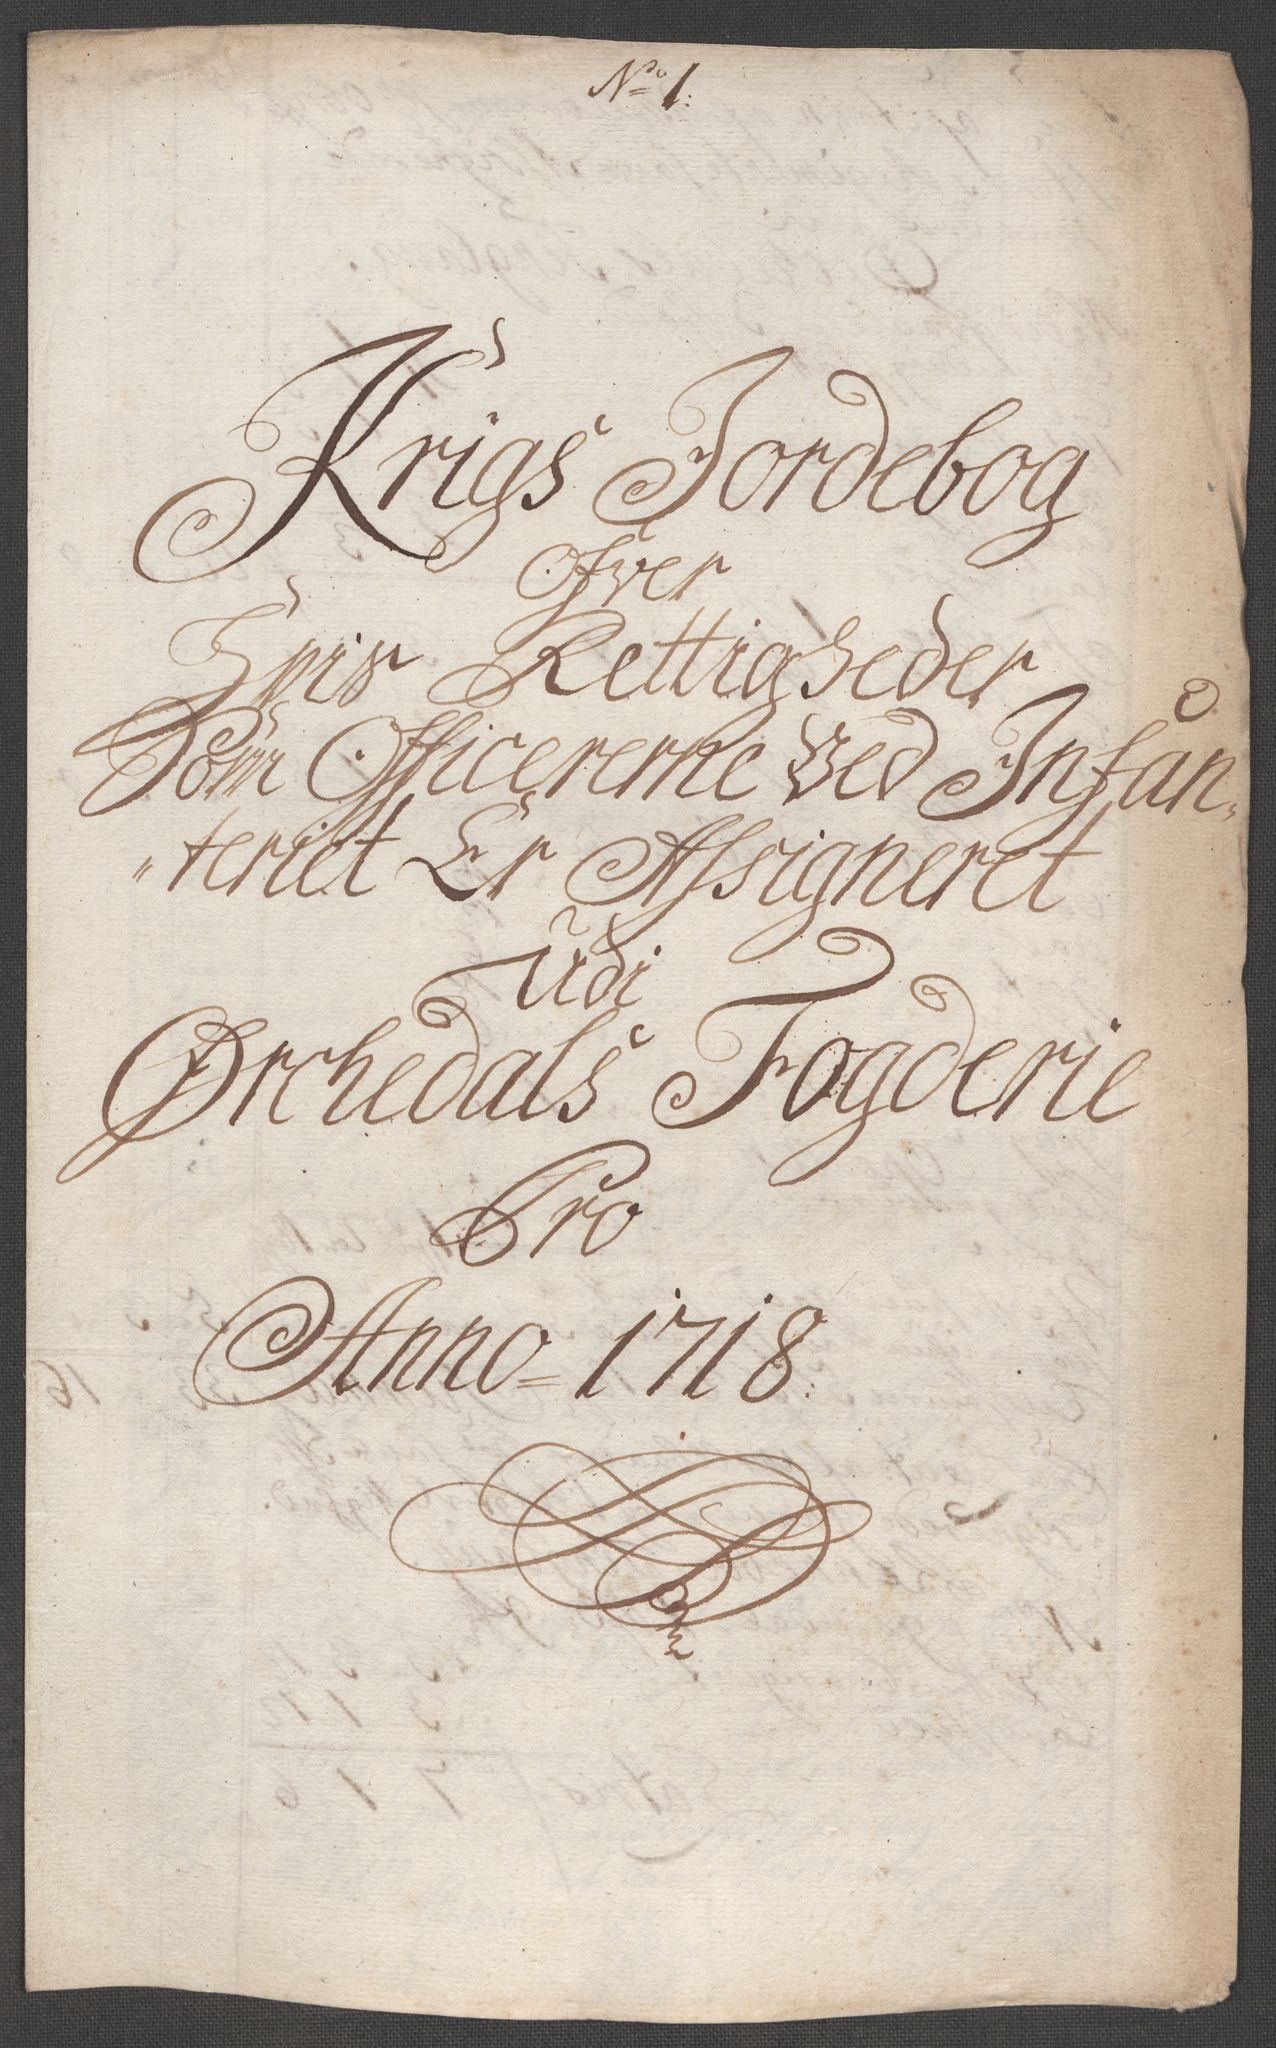 No 1.
Krigs Jordebog
Ofver
Spis Rettigheder
Som Officererne Ved Infan„
„teriet Er Assigneret
Udi
Ørchedals Fogderie
Pro
Anno = 1718.